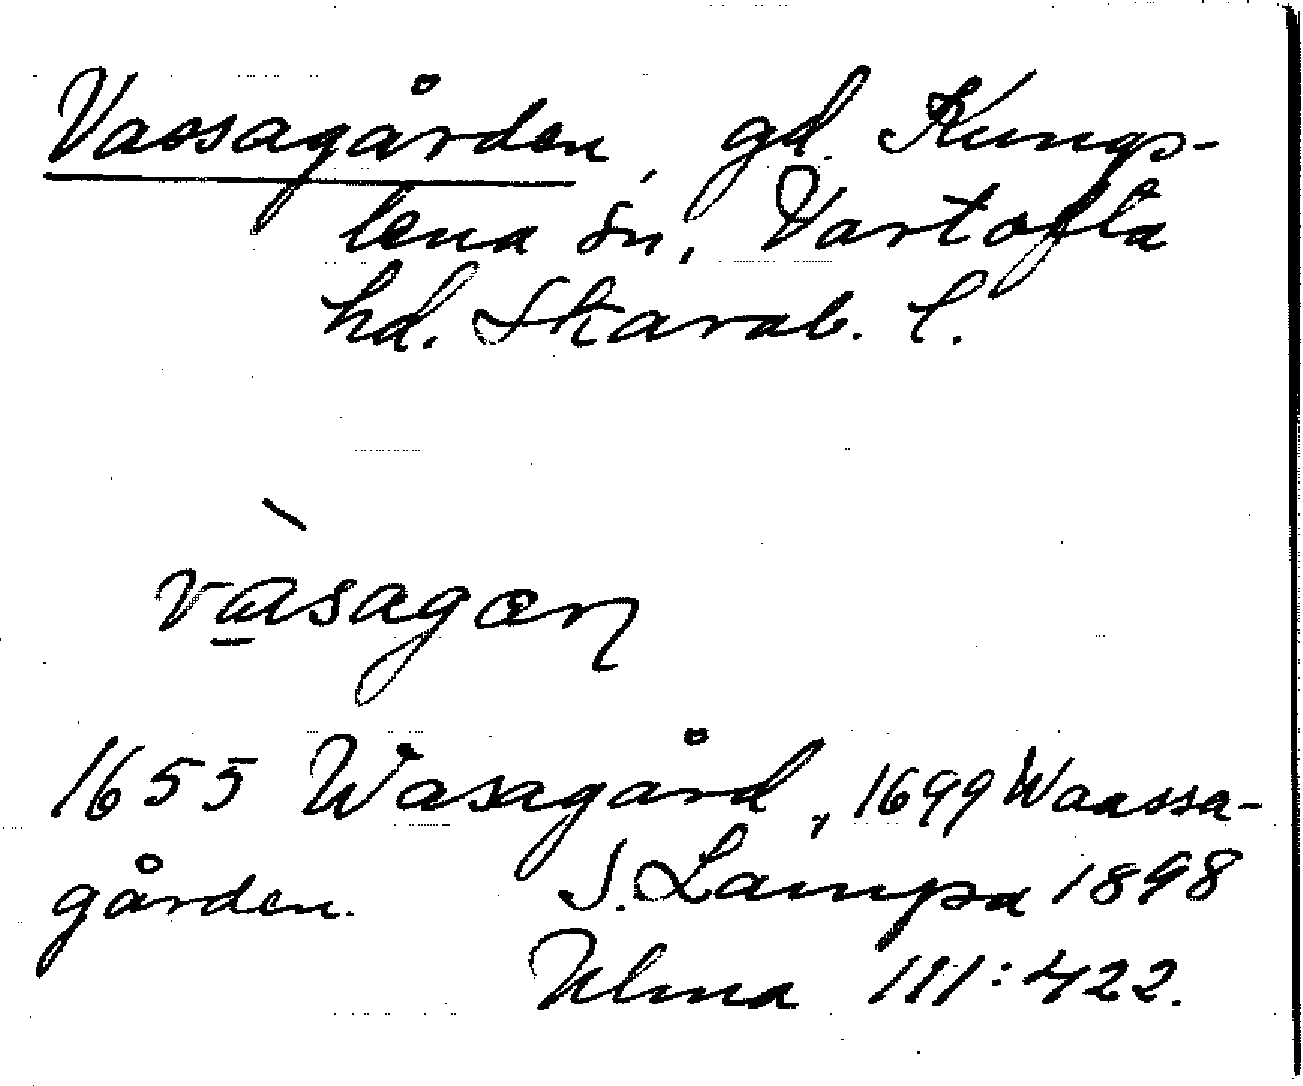 Vassagården, gd Kungs-
lena sn, Vartofta
hd. Skarab. l.
vàsagoŋ
1655 Wasagård, 1699 Waassa-
gården. S. Lampa 1898
Ulma 111:422.